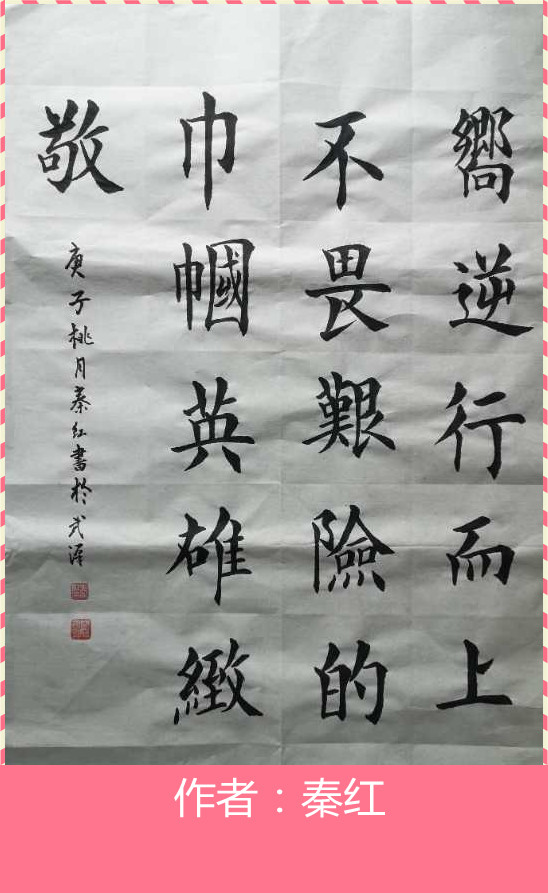 嚮逆行而上
不畏艱險的
巾幗英雄緻
敬
庚子桃月秦红書於武漢
作者：秦红